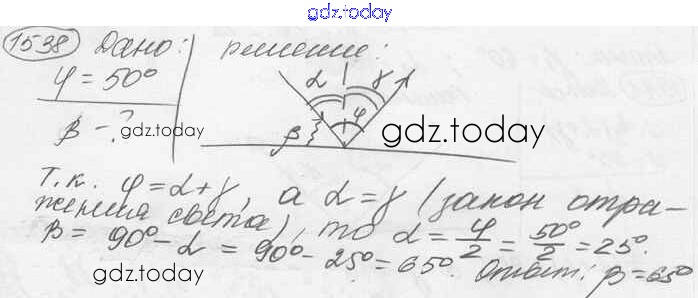 gdz.today
1538 Дано: Решение:
φ = 50° α γ
β - ? β φ
gdz.today gdz.today
Т.к. φ = α + γ, а α = γ (закон отра-
жения света), то α = φ/2 = 50°/2 = 25°.
β = 90° - α = 90° - 25° = 65°. Ответ: β = 65°
gdz.today